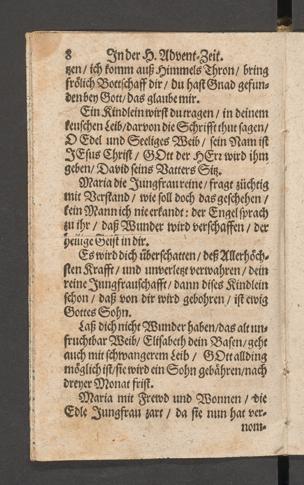 8 In der H. Advent-Zeit.
tzen / ich komm auß Himmels Thron / bring
frölich Bottschafft dir / du hast Gnad gefun-
den bey Gott / das glaube mir.
Ein Kindlein wirst du tragen / in deinem
keuschen Leib / darvon die Schrifft thut sagen /
O Edel und Seeliges Weib / sein Nam ist
JEsus Christ / GOtt der HErr wird ihm
geben / David seins Vatters Sitz.
Maria die Jungfrau reine / fragt züchtig
mit Verstand / wie soll doch das geschehen /
kein Mann ich nie erkandt: der Engel sprach
zu ihr / daß Wunder wird verschaffen / der
heilige Geist in dir.
Es wird dich überschatten / deß Allerhöch-
sten Krafft / und unverletzt verwahren / dein
reine Jungfrauschafft / dann dises Kindlein
schon / daß von dir wird gebohren / ist ewig
Gottes Sohn.
Laß dich nicht Wunder haben / das alt un-
fruchtbar Weib / Elisabeth dein Basen / geht
auch mit schwangerem Leib / GOtt all ding
möglich ist / sie wird ein Sohn gebähren / nach
dreyer Monat frist.
Maria mit Frewd und Wonnen / die
Edle Jungfrau zart / da sie nun hat ver-
nom-